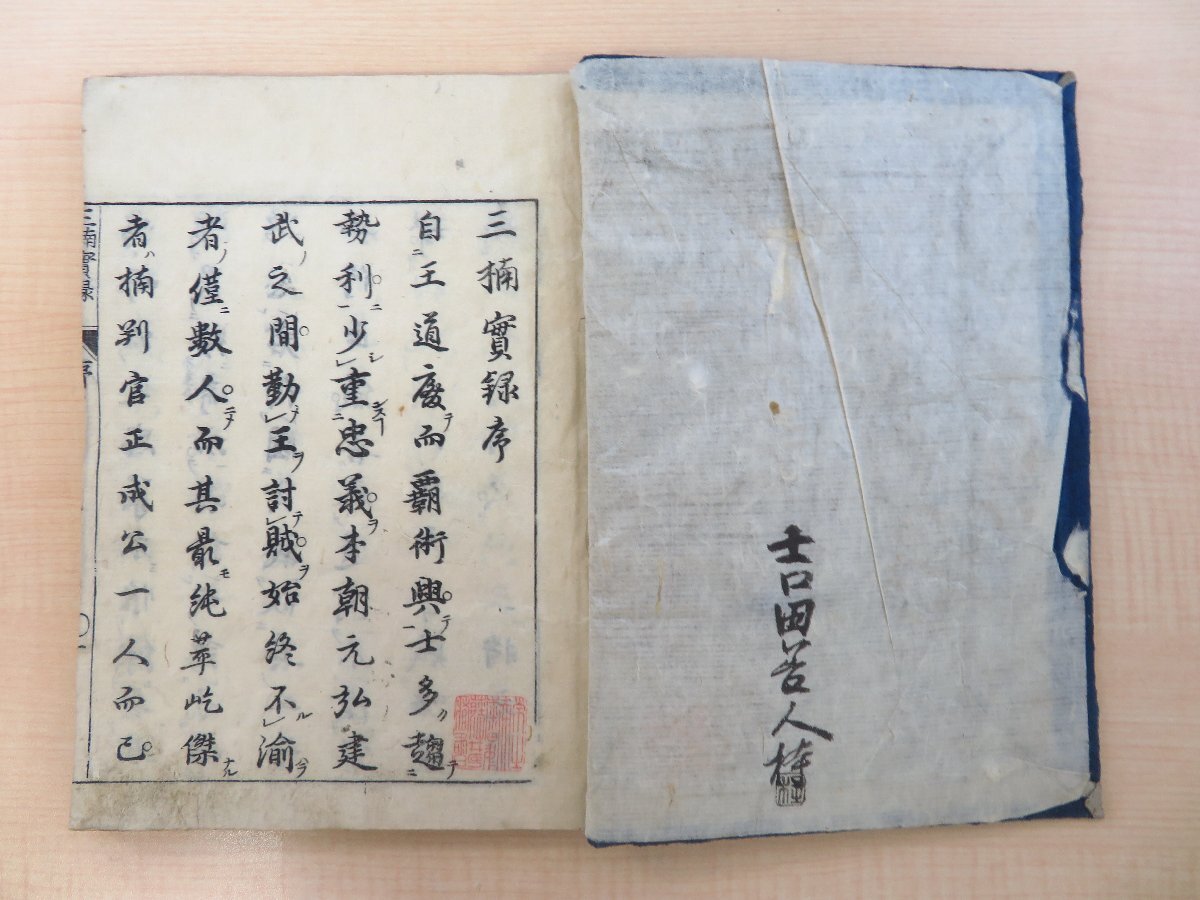 吉田
人持
三楠實録序
自王道廢而覇術興士多趨
勢利少重忠義本朝元弘建
武之間勤王討賊始終不渝
者僅數人而其最純萃屹傑
者楠判官正成公一人而已
三楠實録 序